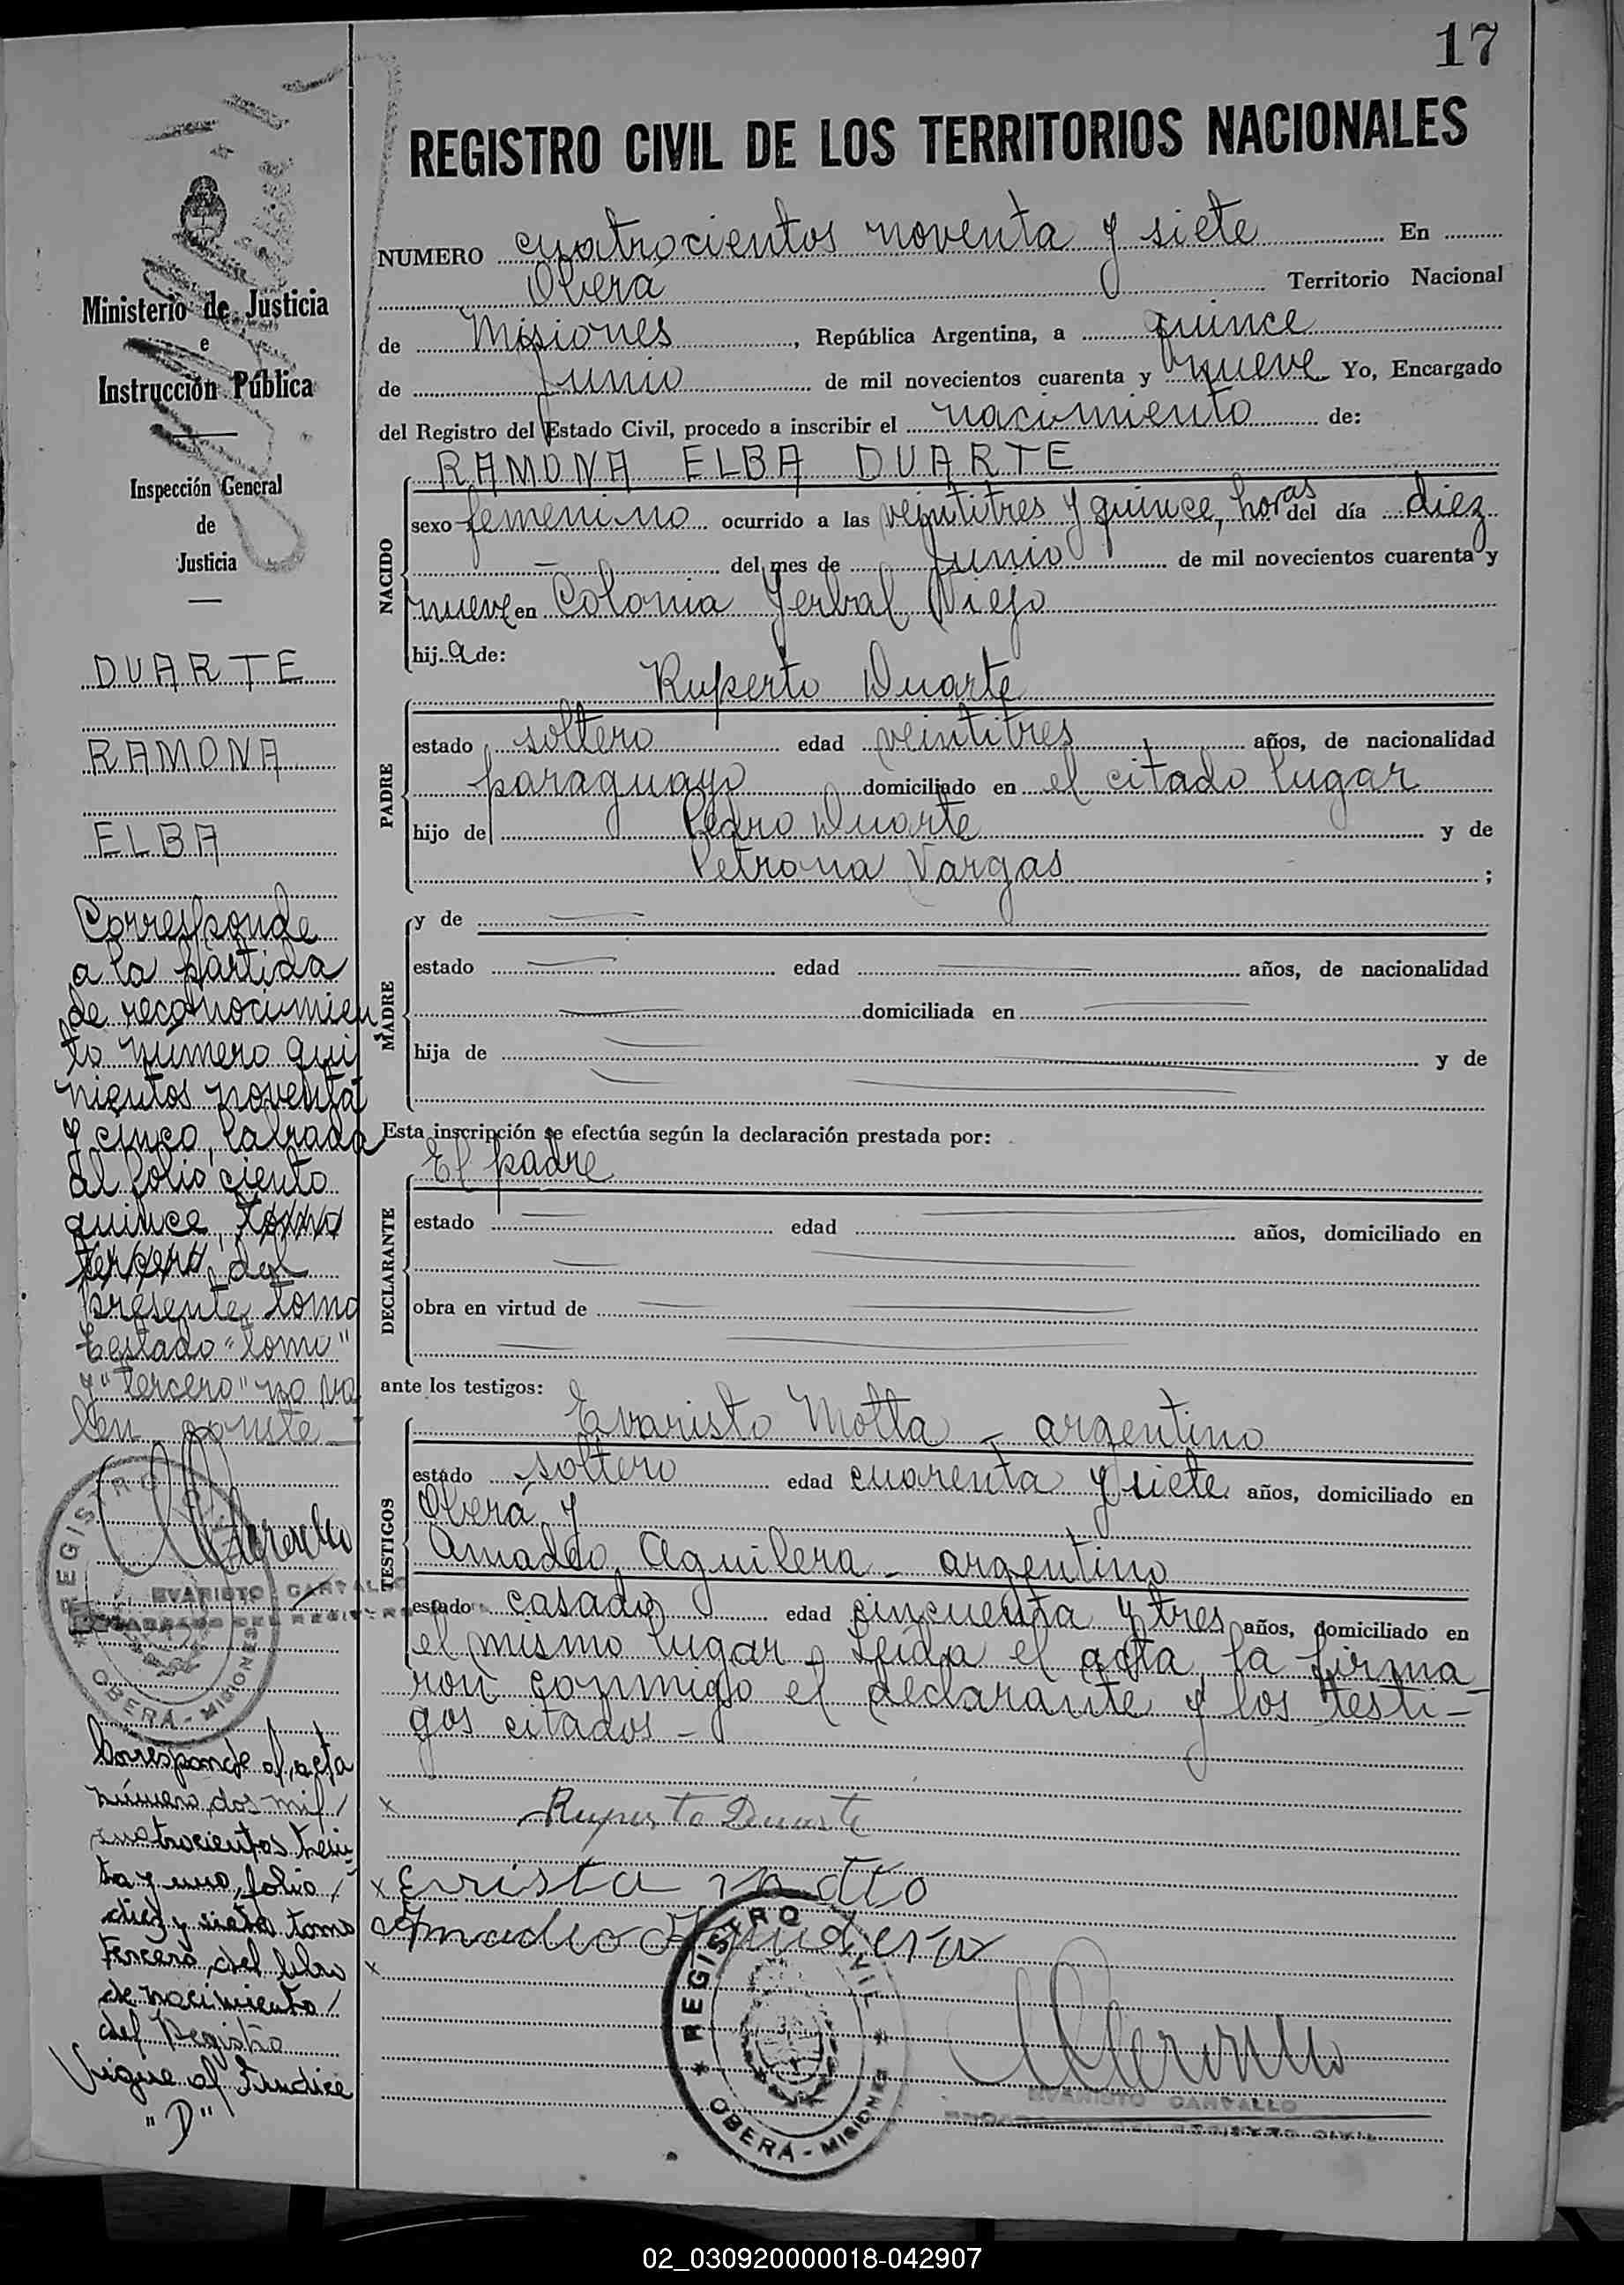 17
REGISTRO CIVIL DE LOS TERRITORIOS NACIONALES
NUMERO cuatrocientos noventa y siete En
Oberá Territorio Nacional
de Misiones, República Argentina, a quince
de Junio de mil novecientos cuarenta y nueve Yo, Encargado
del Registro del Estado Civil, procedo a inscribir el nacimiento de:
RAMONA ELBA DUARTE
NACIDO
sexo femenino ocurrido a las veintitres y quince, horas del día diez
— del mes de Junio de mil novecientos cuarenta y
nueve en Colonia Yerbal Viejo
hija de:
Ruperto Duarte
PADRE
estado soltero edad veintitres años, de nacionalidad
paraguayo domiciliado en el citado lugar
hijo de Pedro Duarte y de
Petrona Vargas ;
MADRE
y de —
estado — edad — años, de nacionalidad
— domiciliada en —
hija de — y de
—
Esta inscripción se efectúa según la declaración prestada por:
El padre
DECLARANTE
estado — edad — años, domiciliado en
—
obra en virtud de —
—
ante los testigos:
Evaristo Motta - argentino
TESTIGOS
estado soltero edad cuarenta y siete años, domiciliado en
Oberá y
Amadeo Aguilera - argentino
estado casado edad cincuenta y tres años, domiciliado en
el mismo lugar. Leida el acta, la firma
ron conmigo el declarante y los testi-
gos citados -
x Ruperto Duarte
x
x
REGISTRO CIVIL
* OBERÁ - MISIONES *
EVARISTO CARVALLO
ENCARGADO DEL REGISTRO CIVIL
Ministerio de Justicia
e
Instrucción Pública
Inspección General
de
Justicia
DUARTE
RAMONA
ELBA
Corresponde
a la partida
de reconocimien
to número qui
nientos noventa
y cinco, labrada
al folio ciento
quince, tomo
tercero, del
presente tomo
testado "tomo"
y "tercero" no va
len conste -
REGISTRO
* OBERÁ - MISIONES
EVARISTO CARVALLO
ENCARGADO DEL REGISTRO
Corresponde al acta
número dos mil/
cuatrocientos trein-
ta y uno, folio/
diez y siete tomo
tercero, del libro
de nacimiento/
del Registro
Vigue al Indice
"D"
02_030920000018-042907